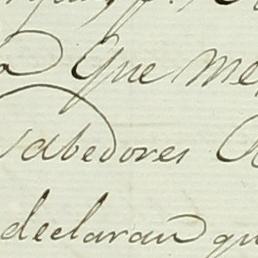 Que me
Sabedores
declaran qu